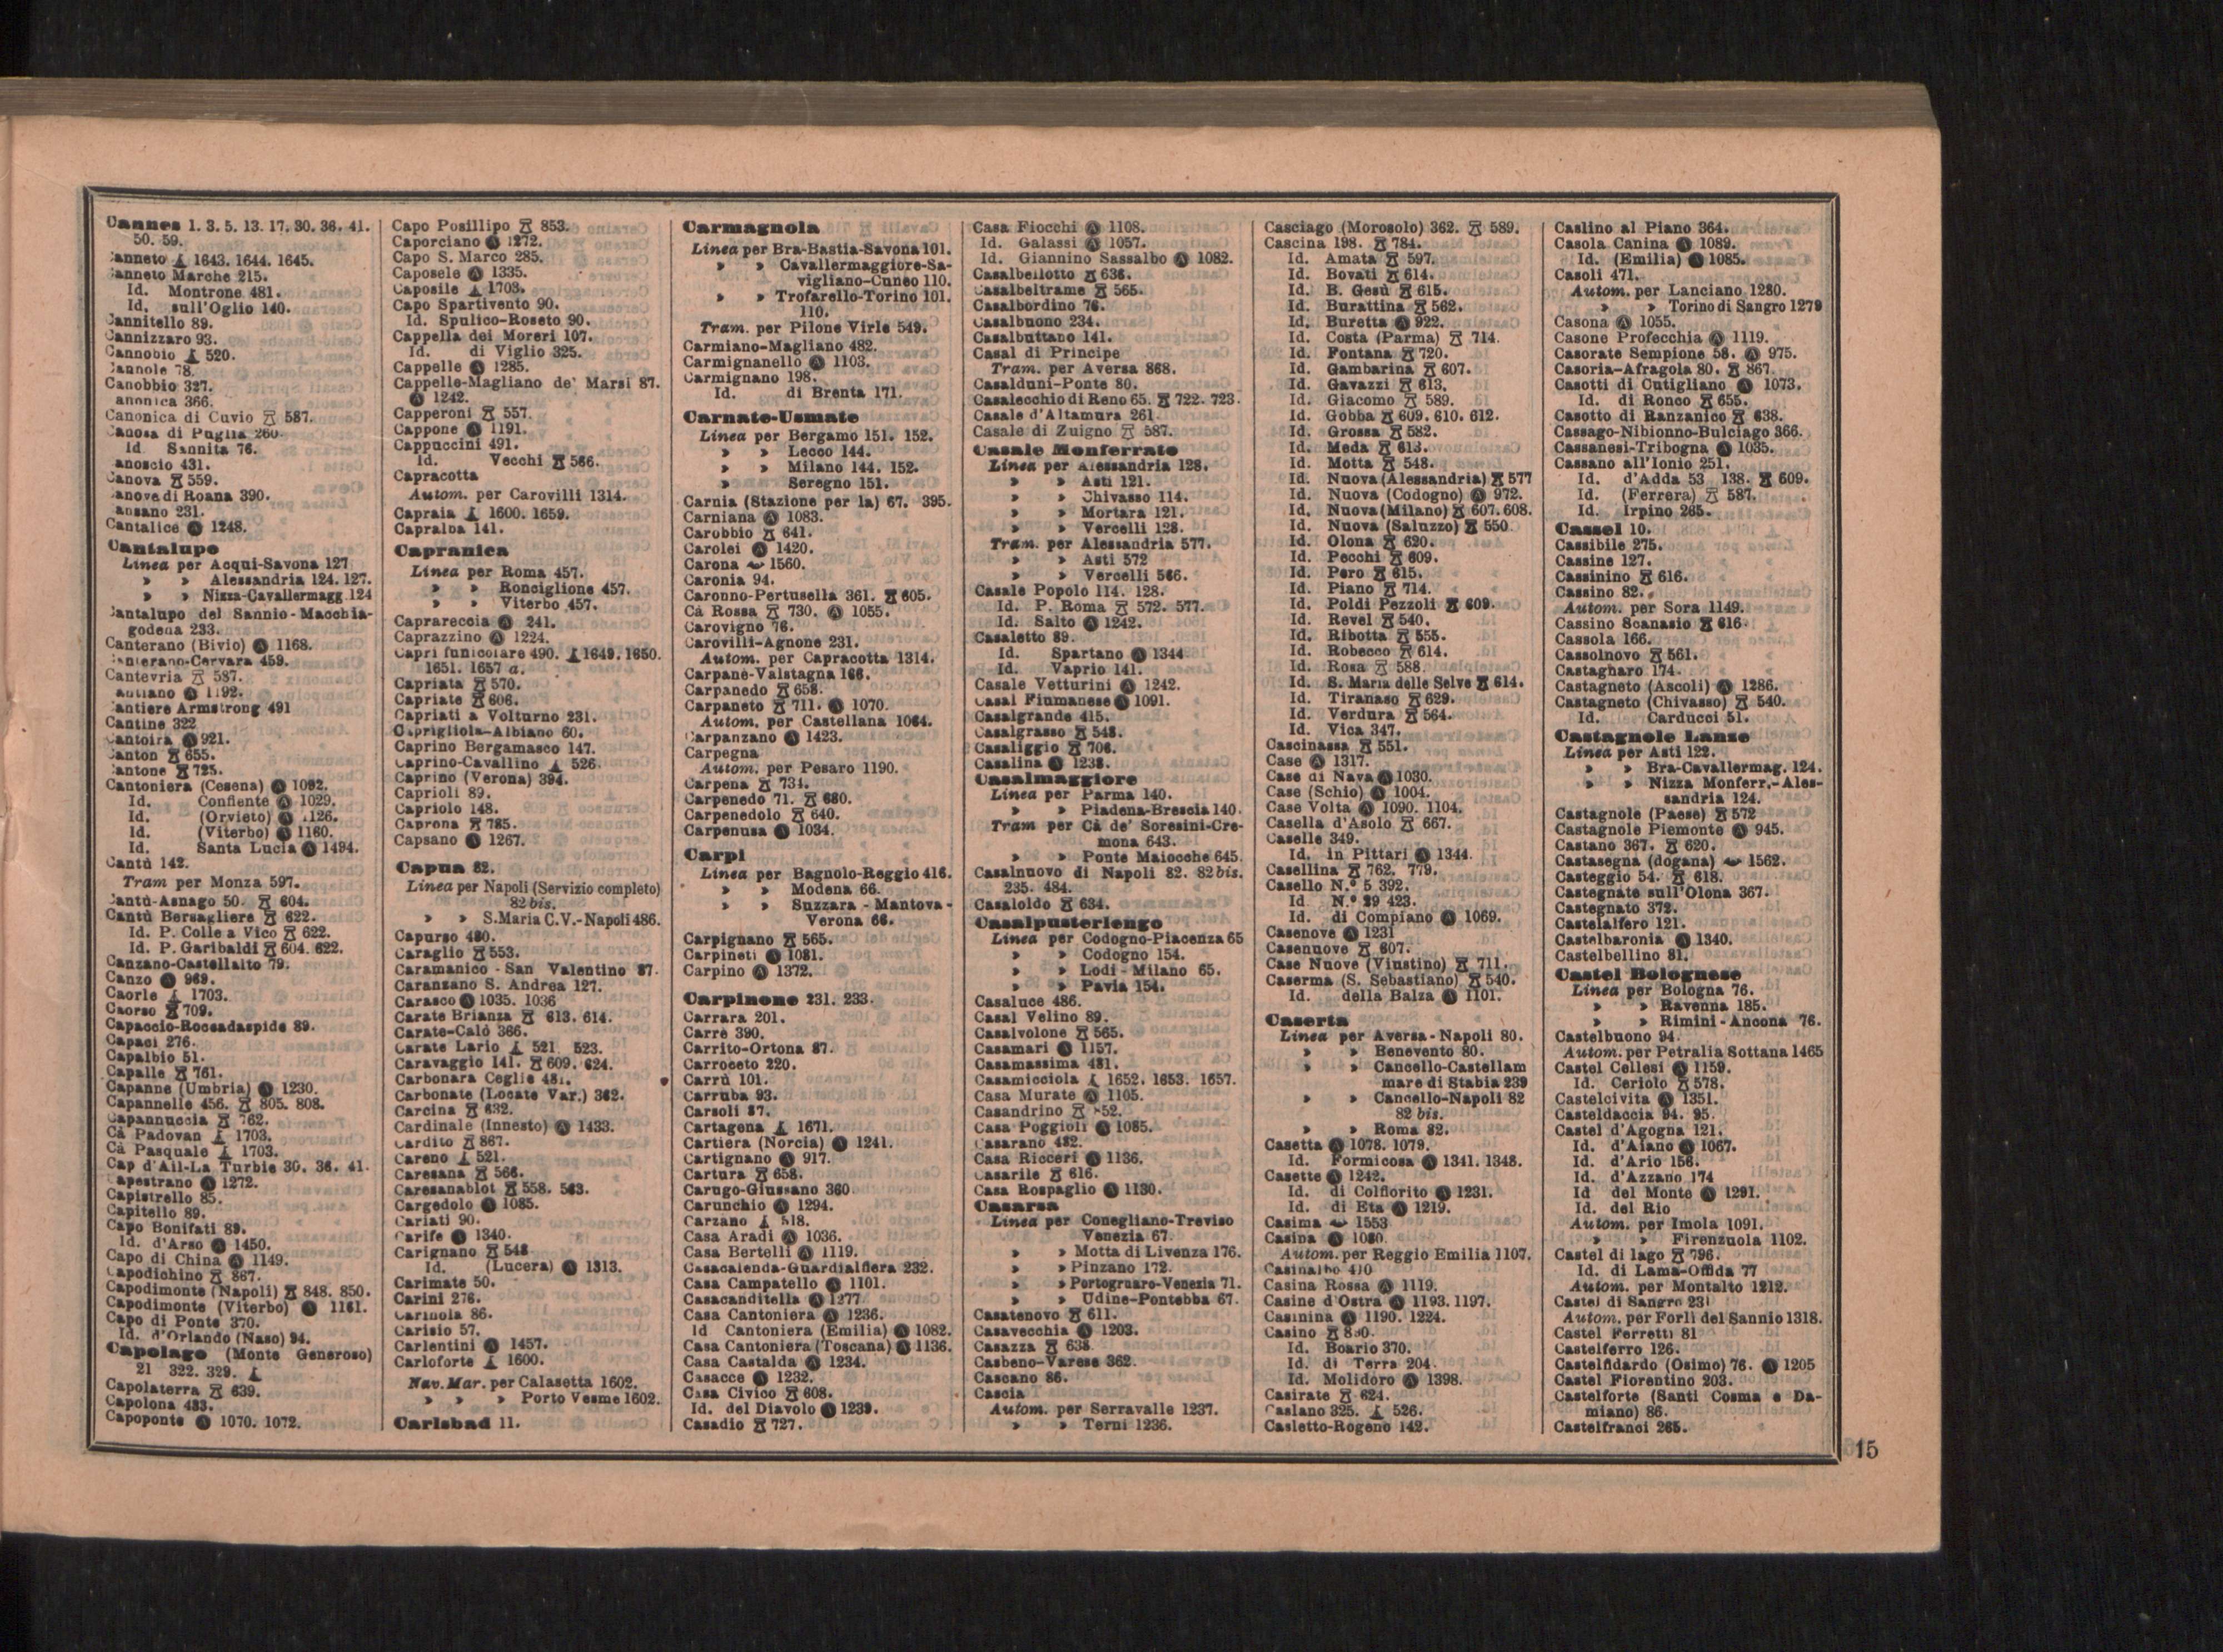 Cannes 1. 3. 5. 13. 17. 30. 36. 41.
50. 59.
Canneto 1643. 1644. 1645.
Canneto Marche 215.
Id. Montrone 481.
Id. sull'Oglio 140.
Cannitello 89.
Cannizzaro 93.
Cannobio 520.
Cannole 78.
Canobbio 327.
anonica 366.
Canonica di Cuvio 587.
Canosa di Puglia 260.
Id Sannita 76.
anoscio 431.
Canova 559.
anova di Roana 390.
ansano 231.
Cantalice Ⓐ 1248.
Cantalupo
Linea per Acqui-Savona 127
» » Alessandria 124. 127.
» » Nizza-Cavallermagg. 124
Cantalupo del Sannio-Macchia-
godena 233.
Canterano (Bivio) Ⓐ 1168.
Canterano-Cervara 459.
Cantevria 587.
antiano Ⓐ 1192.
Cantiere Armstrong 491
Cantine 322
Cantoira Ⓐ 921.
Canton 655.
Cantone 725.
Cantoniera (Cesena) Ⓐ 1092.
Id. Confiente Ⓐ 1029.
Id. (Orvieto) Ⓐ 1126.
Id. (Viterbo) Ⓐ 1160.
Id. Santa Lucia Ⓐ 1494.
Cantù 142.
Tram per Monza 597.
Cantù-Asnago 50. 604.
Cantù Bersagliere 622.
Id. P. Colle a Vico 622.
Id. P. Garibaldi 604. 622.
Canzano-Castellalto 79.
Canzo Ⓐ 969.
Caorle 1703.
Caorso 709.
Capaccio-Roccadaspide 89.
Capaci 276.
Capalbio 51.
Capalle 761.
Capanne (Umbria) Ⓐ 1230.
Capannelle 456. 805. 808.
Capannuccia 762.
Cà Padovan 1703.
Cà Pasquale 1703.
Cap d'Ail-La Turbie 30. 36. 41.
Capestrano Ⓐ 1272.
Capistrello 85.
Capitello 89.
Capo Bonifati 89.
Id. d'Arso Ⓐ 1450.
Capo di China Ⓐ 1149.
Capodichino 867.
Capodimonte (Napoli) 848. 850.
Capodimonte (Viterbo) Ⓐ 1161.
Capo di Ponte 370.
Id. d'Orlando (Naso) 94.
Capolago (Monte Generoso)
21 322. 329.
Capolaterra 639.
Capolona 433.
Capoponte Ⓐ 1070. 1072.
Capo Posillipo 853.
Caporciano Ⓐ 1272.
Capo S. Marco 285.
Caposele Ⓐ 1335.
Caposile 1703.
Capo Spartivento 90.
Id. Spulico-Roseto 90.
Cappella dei Moreri 107.
Id. di Viglio 325.
Cappelle Ⓐ 1285.
Cappelle-Magliano de' Marsi 87.
Ⓐ 1242.
Capperoni 557.
Cappone Ⓐ 1191.
Cappuccini 491.
Id. Vecchi 566.
Capracotta
Autom. per Carovilli 1314.
Capraia 1600. 1659.
Capralba 141.
Capranica
Linea per Roma 457.
» » Ronciglione 457.
» » Viterbo 457.
Caprareccia Ⓐ 241.
Caprazzino Ⓐ 1224.
Capri funicolare 490. 1649. 1650.
1651. 1657 a.
Capriata 570.
Capriate 606.
Capriati a Volturno 231.
Caprigliola-Albiano 60.
Caprino Bergamasco 147.
Caprino-Cavallino 526.
Caprino (Verona) 394.
Caprioli 89.
Capriolo 148.
Caprona 785.
Capsano Ⓐ 1267.
Capua 82.
Linea per Napoli (Servizio completo)
82 bis.
» » S. Maria C. V.-Napoli 486.
Capurso 480.
Caraglio 553.
Caramanico - San Valentino 87.
Caranzano S. Andrea 127.
Carasco Ⓐ 1035. 1036
Carate Brianza 613. 614.
Carate-Calò 366.
Carate Lario 521 523.
Caravaggio 141. 609. 624.
Carbonara Ceglie 481.
Carbonate (Locate Var.) 362.
Carcina 632.
Cardinale (Innesto) Ⓐ 1433.
Cardito 867.
Careno 521.
Caresana 566.
Caresanablot 558. 563.
Cargedolo Ⓐ 1085.
Cariati 90.
Carife Ⓐ 1340.
Carignano 548
Id. (Lucera) Ⓐ 1313.
Carimate 50.
Carini 276.
Carinola 86.
Carisio 57.
Carlentini Ⓐ 1457.
Carloforte 1600.
Nav. Mar. per Calasetta 1602.
» » » Porto Vesme 1602.
Carlsbad 11.
Carmagnola
Linea per Bra-Bastia-Savona 101.
» » Cavallermaggiore-Sa-
vigliano-Cuneo 110.
» » Trofarello-Torino 101.
110.
Tram. per Pilone Virle 549.
Carmiano-Magliano 482.
Carmignanello Ⓐ 1103.
Carmignano 198.
Id. di Brenta 171.
Carnate-Usmate
Linea per Bergamo 151. 152.
» » Lecco 144.
» » Milano 144. 152.
» Seregno 151.
Carnia (Stazione per la) 67. 395.
Carniana Ⓐ 1083.
Carobbio 641.
Carolei Ⓐ 1420.
Carona 1560.
Caronia 94.
Caronno-Pertusella 361. 605.
Cà Rossa 730. Ⓐ 1055.
Carovigno 76.
Carovilli-Agnone 231.
Autom. per Capracotta 1314.
Carpanè-Valstagna 166.
Carpanedo 658.
Carpaneto 711. Ⓐ 1070.
Autom. per Castellana 1064.
Carpanzano Ⓐ 1423.
Carpegna
Autom. per Pesaro 1190.
Carpena 734.
Carpenedo 71. 680.
Carpenedolo 640.
Carpenusa Ⓐ 1034.
Carpi
Linea per Bagnolo-Reggio 416.
» » Modena 66.
» » Suzzara - Mantova -
Verona 66.
Carpignano 565.
Carpineti Ⓐ 1081.
Carpino Ⓐ 1372.
Carpinone 231. 233.
Carrara 201.
Carrè 390.
Carrito-Ortona 87.
Carroceto 220.
Carrù 101.
Carruba 93.
Carsoli 87.
Cartagena 1671.
Cartiera (Norcia) Ⓐ 1241.
Cartignano Ⓐ 917.
Cartura 658.
Carugo-Giussano 360
Carunchio Ⓐ 1294.
Carzano 518.
Casa Aradi Ⓐ 1036.
Casa Bertelli Ⓐ 1119.
Casacalenda-Guardialfiera 232.
Casa Campatello Ⓐ 1101.
Casacanditella Ⓐ 1277
Casa Cantoniera Ⓐ 1236.
Id Cantoniera (Emilia) Ⓐ 1082.
Casa Cantoniera (Toscana) Ⓐ 1136.
Casa Castalda Ⓐ 1234.
Casacce Ⓐ 1232.
Casa Civico 608.
Id. del Diavolo Ⓐ 1239.
Casadio 727.
Casa Fiocchi Ⓐ 1108.
Id. Galassi Ⓐ 1057.
Id. Giannino Sassalbo Ⓐ 1082.
Casalbellotto 636.
Casalbeltrame 565.
Casalbordino 76.
Casalbuono 234.
Casalbuttano 141.
Casal di Principe
Tram. per Aversa 868.
Casalduni-Ponte 80.
Casalecchio di Reno 65. 722. 723.
Casale d'Altamura 261.
Casale di Zuigno 587.
Casale Monferrato
Linea per Alessandria 128.
» » Asti 121.
» » Chivasso 114.
» » Mortara 121.
» » Vercelli 128.
Tram. per Alessandria 577.
» » Asti 572
» » Vercelli 566.
Casale Popolo 114. 128.
Id. P. Roma 572. 577.
Id. Salto Ⓐ 1242.
Casaletto 89.
Id. Spartano Ⓐ 1344
Id. Vaprio 141.
Casale Vetturini Ⓐ 1242.
Casal Fiumanese Ⓐ 1091.
Casalgrande 415.
Casalgrasso 548.
Casaliggio 706.
Casalina Ⓐ 1238.
Casalmaggiore
Linea per Parma 140.
» » Piadena-Brescia 140.
Tram per Cà de' Soresini-Cre-
mona 643.
» » Ponte Maiocche 645.
Casalnuovo di Napoli 82. 82 bis.
235. 484.
Casaloldo 634.
Casalpusterlengo
Linea per Codogno-Piacenza 65
» » Codogno 154.
» » Lodi - Milano 65.
» » Pavia 154.
Casaluce 486.
Casal Velino 89.
Casalvolone 565.
Casamari Ⓐ 1157.
Casamassima 481.
Casamicciola 1652. 1653. 1657.
Casa Murate Ⓐ 1105.
Casandrino 52.
Casa Poggioli Ⓐ 1085.
Casarano 482.
Casa Ricceri Ⓐ 1136.
Casarile 616.
Casa Rospaglio Ⓐ 1130.
Casarsa
Linea per Conegliano-Treviso
Venezia 67.
» » Motta di Livenza 176.
» » Pinzano 172.
» » Portogruaro-Venezia 71.
» » Udine-Pontebba 67.
Casatenovo 611.
Casavecchia Ⓐ 1203.
Casazza 638.
Casbeno-Varese 362.
Cascano 86.
Cascia
Autom. per Serravalle 1237.
» » Terni 1236.
Casciago (Morosolo) 362. 589.
Cascina 198. 784.
Id. Amata 597.
Id. Bovati 614.
Id. B. Gesù 615.
Id. Burattina 562.
Id. Buretta Ⓐ 922.
Id. Costa (Parma) 714.
Id. Fontana 720.
Id. Gambarina 607.
Id. Gavazzi 613.
Id. Giacomo 589.
Id. Gobba 609. 610. 612.
Id. Grossa 582.
Id. Meda 613.
Id. Motta 548.
Id. Nuova (Alessandria) 577
Id. Nuova (Codogno) Ⓐ 972.
Id. Nuova (Milano) 607. 608.
Id. Nuova (Saluzzo) 550
Id. Olona 620.
Id. Pecchi 609.
Id. Pero 615.
Id. Piano 714.
Id. Poldi Pezzoli 609.
Id. Revel 540.
Id. Ribotta 555.
Id. Robecco 614.
Id. Rosa 588.
Id. S. Maria delle Selve 614.
Id. Tiranaso 629.
Id. Verdura 564.
Id. Vica 347.
Cascinassa 551.
Case Ⓐ 1317.
Case di Nava Ⓐ 1030.
Case (Schio) Ⓐ 1004.
Case Volta Ⓐ 1090. 1104.
Casella d'Asolo 667.
Caselle 349.
Id. in Pittari Ⓐ 1344.
Casellina 762. 779.
Casello N.º 5 392.
Id N.º 29 423.
Id. di Compiano Ⓐ 1069.
Casenove Ⓐ 1231
Casenuove 607.
Case Nuove (Viustino) 711.
Caserma (S. Sebastiano) 540.
Id. della Balza Ⓐ 1101.
Caserta
Linea per Aversa - Napoli 80.
» » Benevento 80.
» » Cancello-Castellam
mare di Stabia 239
» » Cancello-Napoli 82
82 bis.
» » Roma 82.
Casetta Ⓐ 1078. 1079.
Id. Formicosa Ⓐ 1341. 1348.
Casette Ⓐ 1242.
Id. di Colfiorito Ⓐ 1231.
Id. di Eta Ⓐ 1219.
Casima 1553
Casina Ⓐ 1080.
Autom. per Reggio Emilia 1107.
Casinalbo 410
Casina Rossa Ⓐ 1119.
Casine d'Ostra Ⓐ 1193. 1197.
Casinina Ⓐ 1190. 1224.
Casino
Id. Boario 370.
Id. di Terra 204.
Id. Molidoro Ⓐ 1398.
Casirate 624.
Caslano 325. 526.
Casletto-Rogeno 142.
Caslino al Piano 364.
Casola Canina Ⓐ 1089.
Id. (Emilia) Ⓐ 1085.
Casoli 471.
Autom. per Lanciano 1280.
» » Torino di Sangro 1279
Casona Ⓐ 1055.
Casone Profecchia Ⓐ 1119.
Casorate Sempione 58. Ⓐ 975.
Casoria-Afragola 80. 867
Casotti di Cutigliano Ⓐ 1073.
Id. di Ronco 655.
Casotto di Ranzanico 638.
Cassago-Nibionno-Bulciago 366.
Cassanesi-Tribogna Ⓐ 1035.
Cassano all'Ionio 251.
Id. d'Adda 53 138. 609.
Id. (Ferrera) 587.
Id. Irpino 265.
Cassel 10.
Cassibile 275.
Cassine 127.
Cassinino 616.
Cassino 82.
Autom. per Sora 1149.
Cassino Scanasio 616
Cassola 166.
Cassolnovo 561.
Castagnaro 174.
Castagneto (Ascoli) Ⓐ 1286.
Castagneto (Chivasso) 540.
Id. Carducci 51.
Castagnole Lanze
Linea per Asti 122.
» » Bra-Cavallermag. 124.
» » Nizza Monferr.-Ales-
sandria 124.
Castagnole (Paese) 572
Castagnole Piemonte Ⓐ 945.
Castano 367. 620.
Castasegna (dogana) 1562.
Casteggio 54. 618.
Castegnate sull'Olona 367.
Castegnato 372.
Castelalfero 121.
Castelbaronia Ⓐ 1340.
Castelbellino 81.
Castel Bolognese
Linea per Bologna 76.
» » Ravenna 185.
» » Rimini - Ancona 76.
Castelbuono 94.
Autom. per Petralia Sottana 1465
Castel Cellesi Ⓐ 1159.
Id. Ceriolo 578.
Castelcivita Ⓐ 1351.
Casteldaccia 94. 95.
Castel d'Agogna 121.
Id. d'Aiano Ⓐ 1067.
Id. d'Ario 156.
Id. d'Azzano 174
Id del Monte Ⓐ 1291.
Id. del Rio
Autom. per Imola 1091.
» » Firenzuola 1102.
Castel di lago 796.
Id. di Lama-Offida 77
Autom. per Montalto 1212.
Castel di Sangro 231
Autom. per Forlì del Sannio 1318.
Castel Ferretti 81
Castelferro 126.
Castelfidardo (Osimo) 76. Ⓐ 1205
Castel Fiorentino 203.
Castelforte (Santi Cosma e Da-
miano) 86.
Castelfranci 265.
15